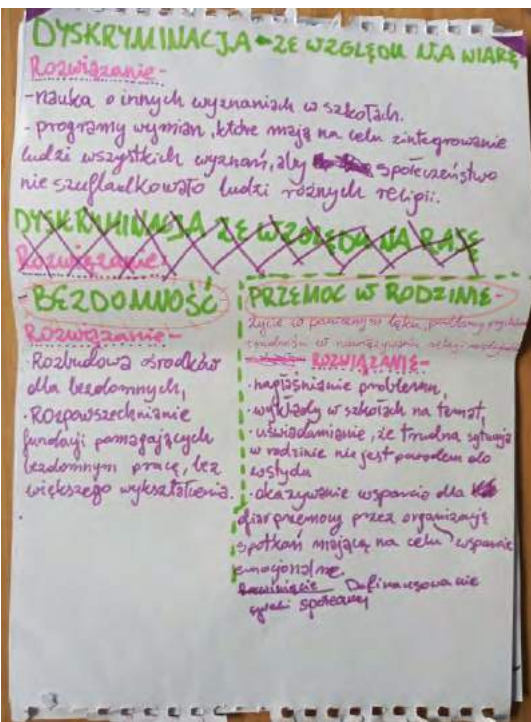 DYSKRYMINACJA - ZE WZGLĘDU NA WIARĘ
Rozwiązanie-
-nauka o innych wyznaniach w szkołach.
- programy wymian, które mają na celu zintegrowanie
ludzi wszystkich wyznań, aby społeczeństwo
nie szufladkowało ludzi różnych religii.
DYSKRYMINACJA ZE WZGLĘDU NA RASĘ
Rozwiązanie:
-BEZDOMNOŚĆ
Rozwiązanie-
·Rozbudowa ośrodków
dla bezdomnych,
·Rozpowszechnianie
fundacji pomagających
bezdomnym pracę, bez
większego wykształcenia.
PRZEMOC W RODZINIE-
życie w lęku, problemy
w nawiązywaniu relacji
ROZWIĄZANIE-
·nagłaśnianie problemu,
·wykłady w szkołach na temat,
·uświadamianie, że trudna sytuacja
w rodzinie nie jest powodem do
wstydu
·okazywanie wsparcia dla
ofiar przemocy przez organizację
spotkań mającą na celu wsparcie
emocjonalne.
Dofinansowanie
społecznej